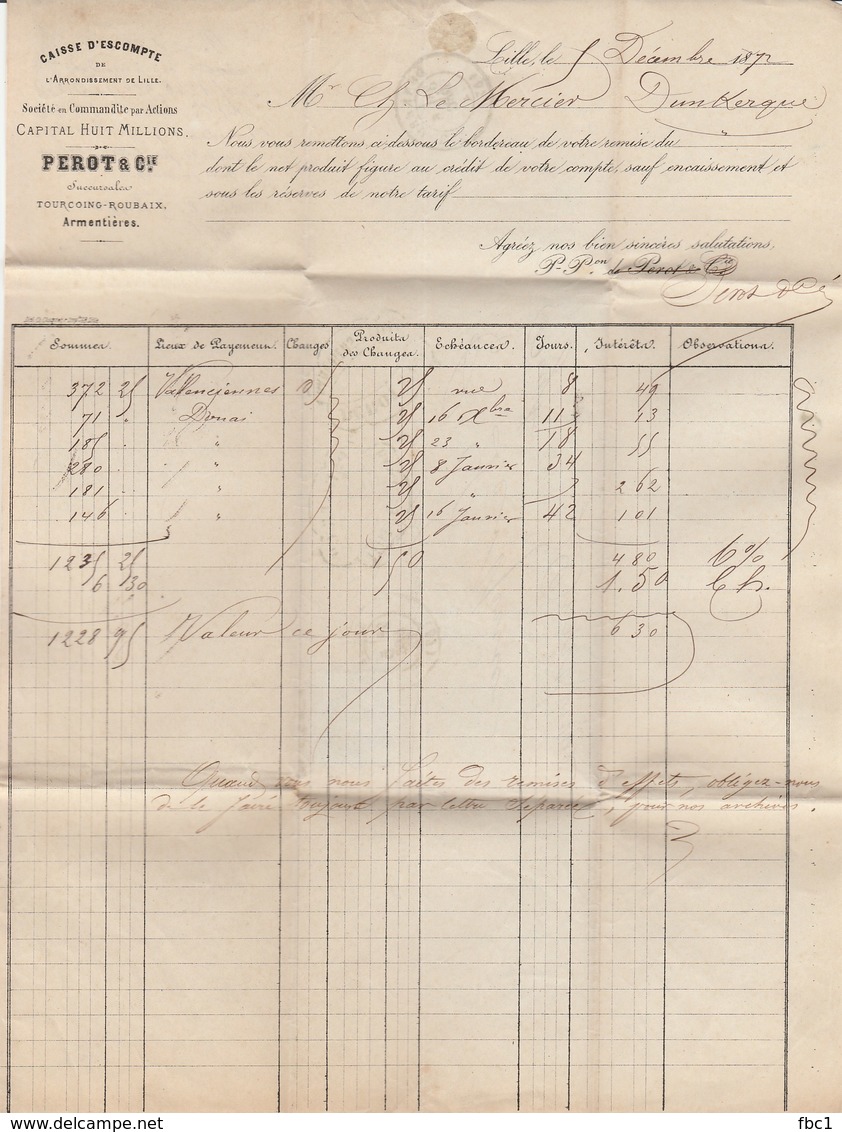 CAISSE D'ESCOMPTE
DE
L'ARRONDISSEMENT DE LILLE.
Société en Commandite par Actions
CAPITAL HUIT MILLIONS.
PEROT & Cie
Succursales
TOURCOING-ROUBAIX.
Armentières.
Lille, le 5 Décembre 1872
Mr Ch. Le Mercier Dunkerque
Nous vous remettons ci-dessous le bordereau de votre remise du "
dont le net produit figure au crédit de votre compte, sauf encaissement et
sous les réserves de notre tarif
Agréez nos bien sincères salutations,
P. Pon de Perot & Cie
Perot & Cie
Sommes. Lieux de Payement. Changes Produits des Changes. Echéances. Jours. Intérêts. Observations.
372 25 Valenciennes 25 vue 8 49
71 " Douai 25 16 Xbre 11 13
185 . " 25 23 " 18 55
280 . " 25 8 Janvier 34
181 . " 25 " 2 62
146 " 25 16 Janvier 42 1 01
1235 25 1 50 4 80 6%
6 30 1.50 Ch.
1228 95 Valeur ce jour 6 30
Quand vous nous faites des remises d'effets, obligez-nous
de le faire toujours par lettre séparée, pour nos archives.
fbc1